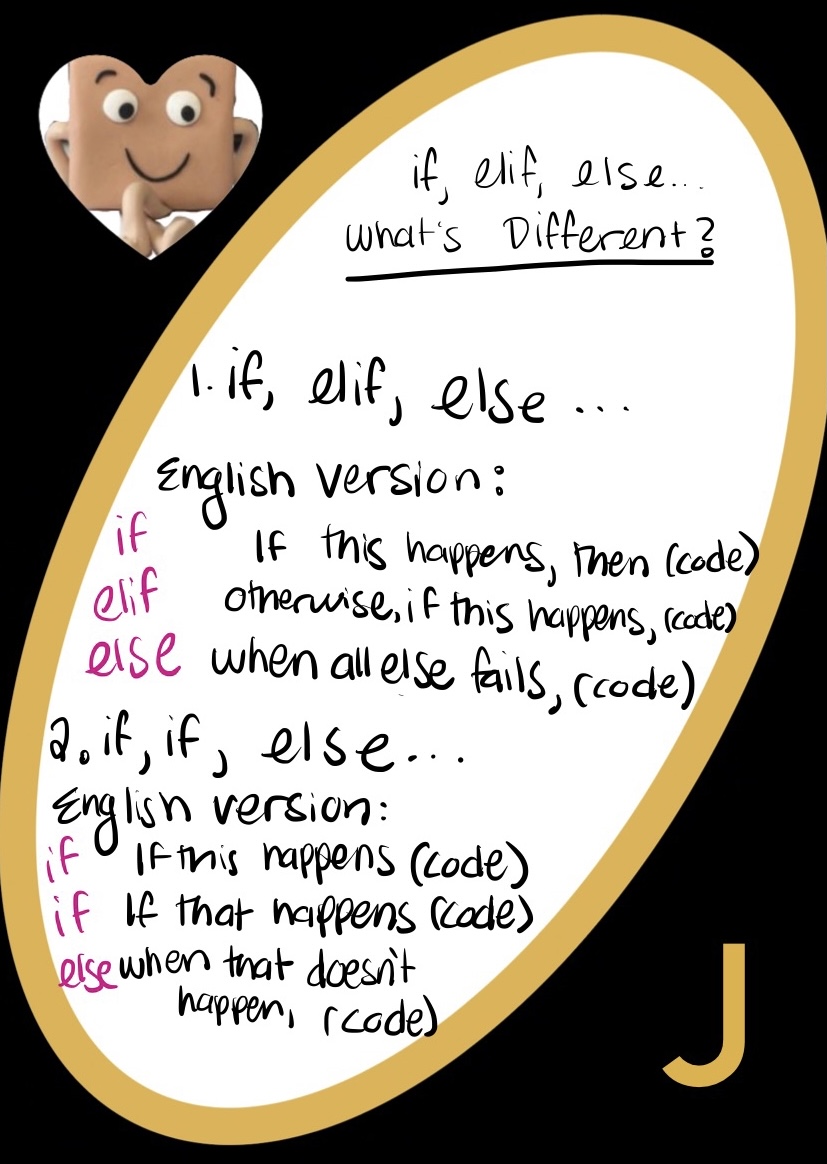 if, elif, else...
What's Different?
1. if, elif, else ...
English version:
if If this happens, then (code)
elif otherwise, if this happens, (code)
else when all else fails, (code)
2. if, if, else...
English version:
if If this happens (code)
if If that happens (code)
else when that doesn't
happen, (code)
J